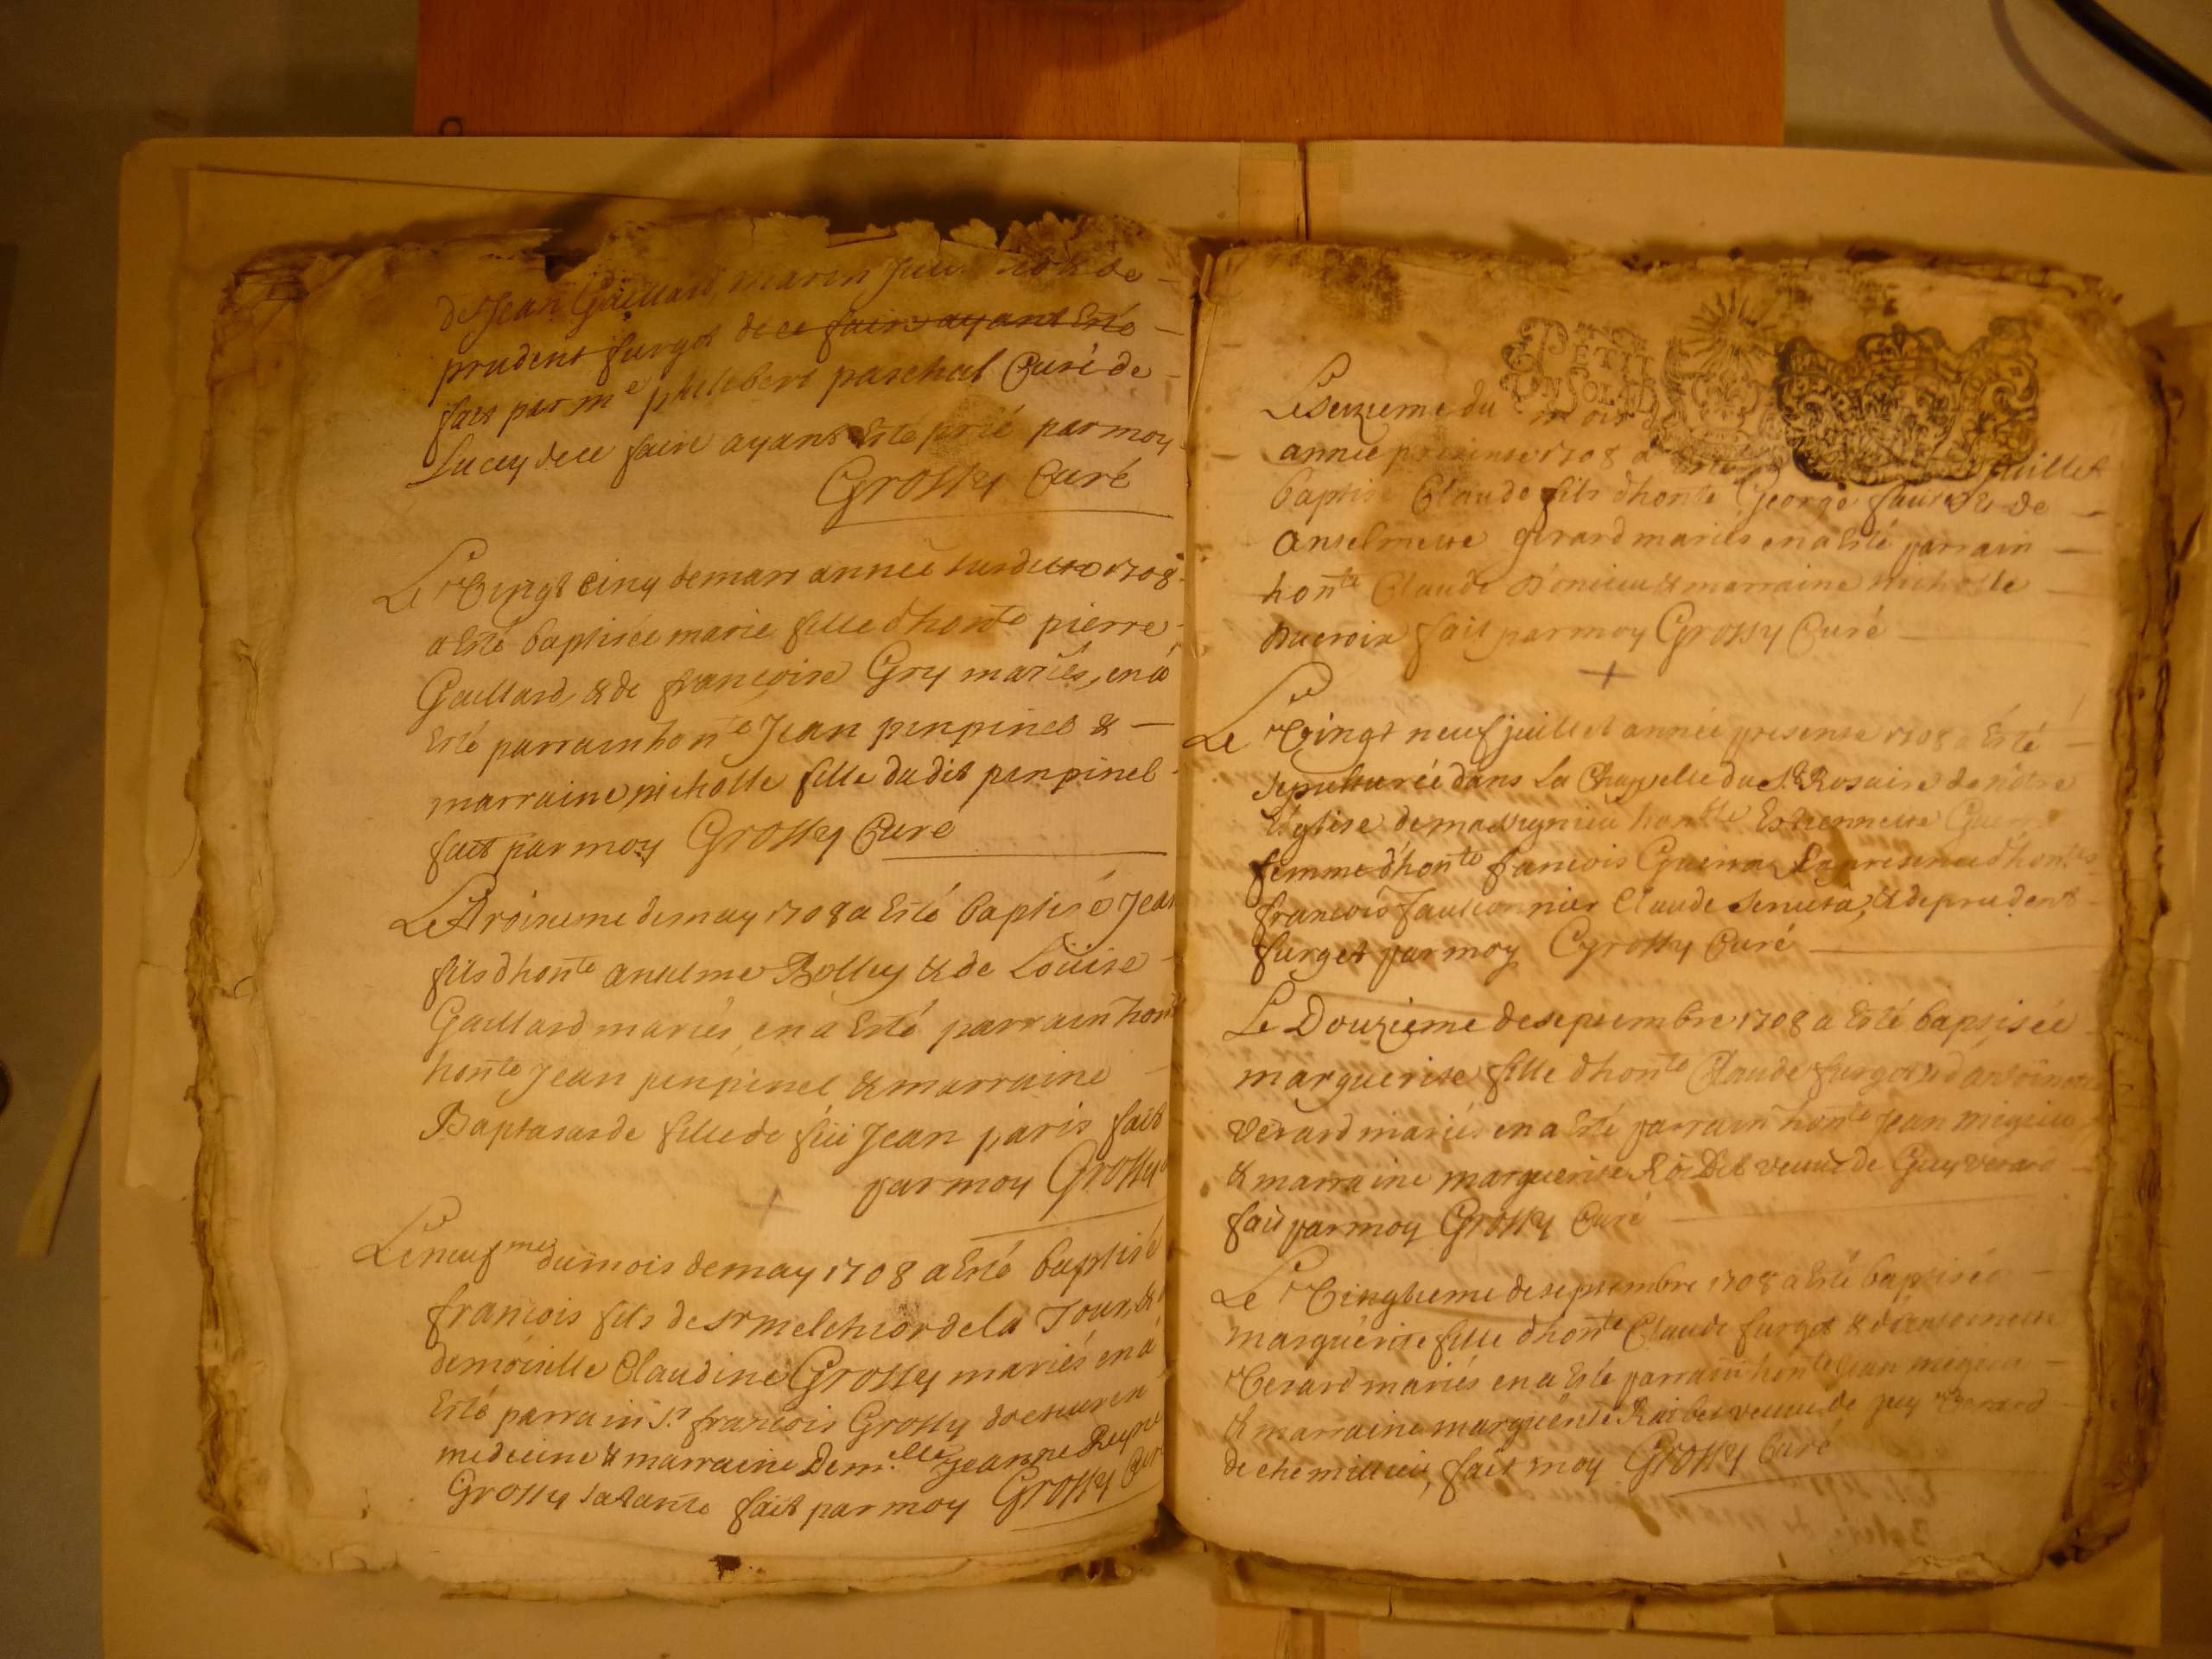 de Jean Gaillard marin
prudent furgot de ce faire ayant Esté
fait par me philibert paschal Curé de
Lucey de ce faire ayant Esté prié par moy
Grossy Curé
Le Vingt cinq de mars année susditte 1708
a Esté baptisée marie fille d'honte pierre
Gaillard & de francoise Gry mariés, en a
Esté parrain honte Jean pinpinel &
marraine nicholle fille dudit pinpinel
fait par moy Grossy Curé
Le Troisieme de may 1708 a Esté baptisé Jean
fils d'honte anselme Bolley & de Loüise
Gaillard mariés, en a Esté parrain hon
honte Jean pinpinel & marraine
Baptasarde fille de feü Jean paris fait
par moy Grossy
Le neufme du mois de may 1708 a Esté baptisé
francois fils de sr melchior de la Tour, &
demoiselle Claudine Grossy mariés en a
Esté parrain sr francois Grossy docteur en
medecine & marraine Demelle Jeanne
Grossy sa tante fait par moy Grossy Curé
PETIT
UN SOL
Le seizieme du mois de juillet
année presente 1708 a Esté
baptisé Claude fils d'honte George & de
Anselmette girard mariés en a Esté parrain
honte Claude & marraine nicholle
Ducroix fait par moy Grossy Curé
Le Vingt neuf juillet année presente 1708 a Esté
sepulturée dans La Chappelle du St Rosaire de nôtre
Eglise de massignieu Estiennette
femme d'honte francois Guerra En presence d'hontes
francois Claude & de prudent
furget par moy Grossy Curé
Le Douzieme de septembre 1708 a Esté baptisée
marguerite fille d'honte Claude furgot & d'antoinette
Verard mariés en a Esté parrain honte Jean migieu
& marraine marguerite veuve de Guy verard
fait par moy Grossy Curé
Le Vingtieme de septembre 1708 a Esté baptisée
marguerite fille d'honte Claude furgot & d'antoinette
Verard mariés en a Esté parrain honte Jean migieu
& marraine marguerite veuve de guy Verard
de chemillieu, fait moy Grossy Curé